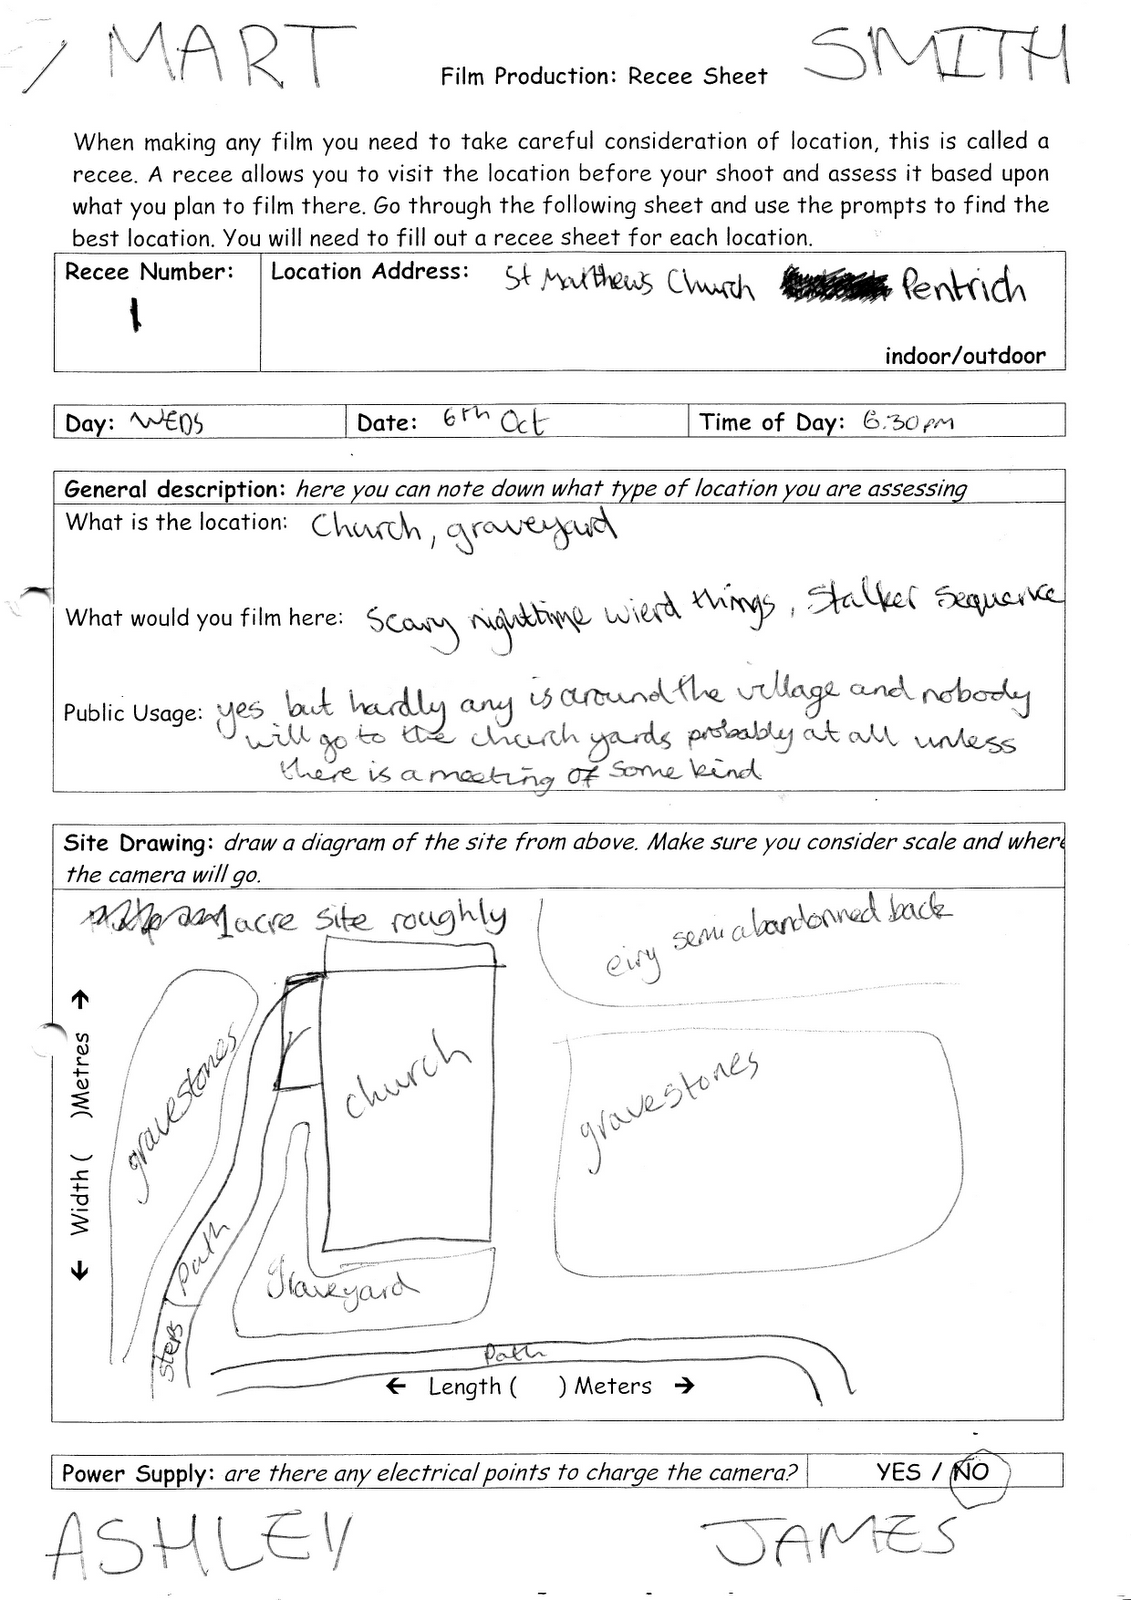 MART SMITH
Film Production: Recee Sheet
When making any film you need to take careful consideration of location, this is called a
recee. A recee allows you to visit the location before your shoot and assess it based upon
what you plan to film there. Go through the following sheet and use the prompts to find the
best location. You will need to fill out a recee sheet for each location.
Recee Number: Location Address: St Matthews Church Pentrich
1
indoor/outdoor
Day: WEDS Date: 6th Oct Time of Day: 6.30pm
General description: here you can note down what type of location you are assessing
What is the location: Church, graveyard
What would you film here: Scary nighttime wierd things, Stalker Sequence
Public Usage: yes but hardly any is around the village and nobody
will go to the church yards probably at all unless
there is a meeting of some kind
Site Drawing: draw a diagram of the site from above. Make sure you consider scale and where
the camera will go.
1 acre site roughly
eiry semi abandonned back
gravestones
church
gravestones
← Width ( )Metres →
path
steps
Graveyard
Path
← Length ( ) Meters →
Power Supply: are there any electrical points to charge the camera? YES / NO
ASHLEY JAMES